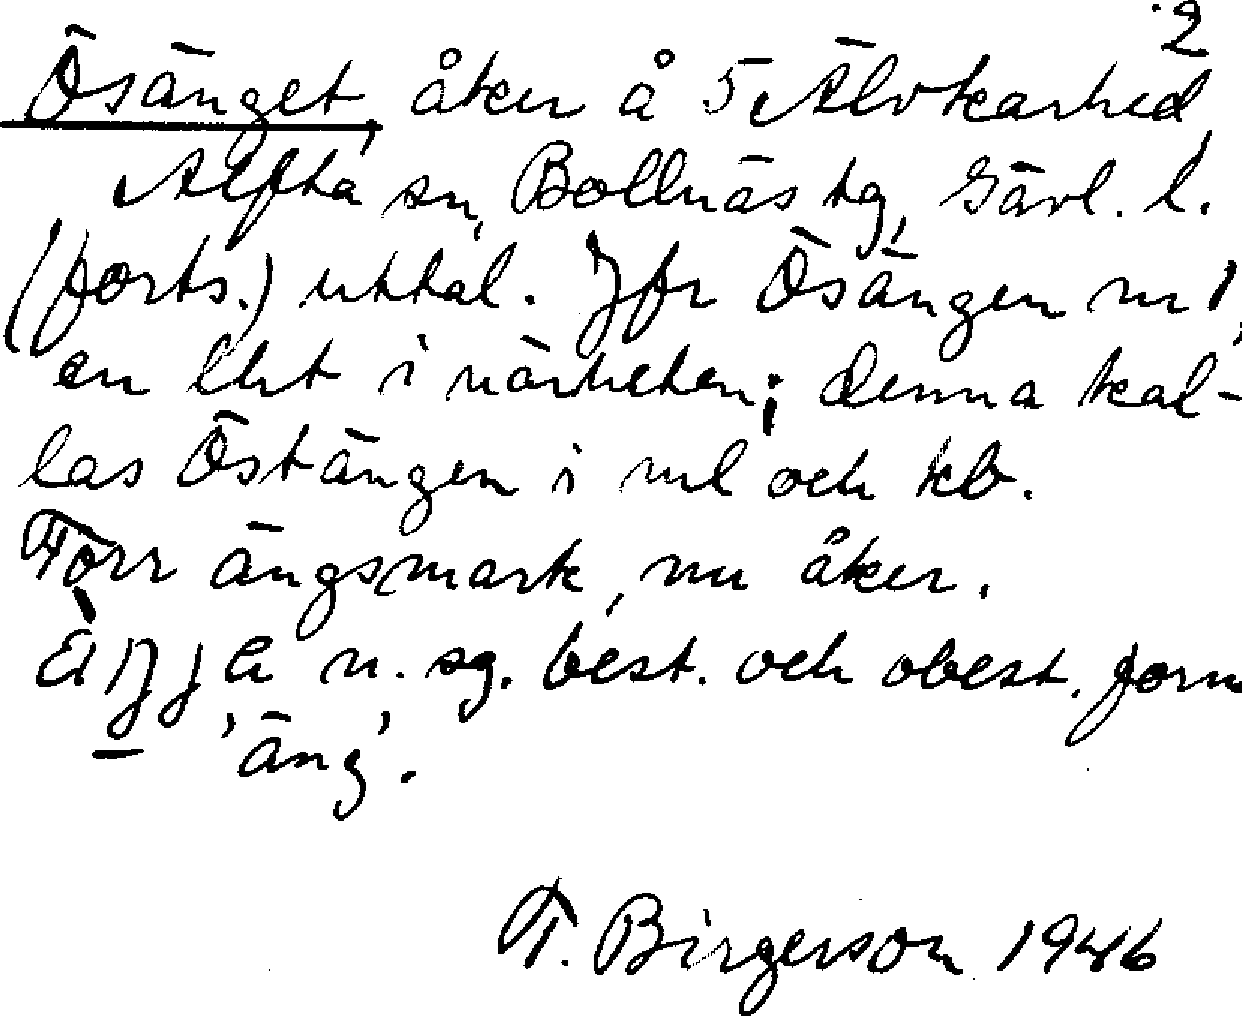 2
Ösänget, åker å 5 Älvkarhed,
Alfta sn, Bollnäs tg, Gävl. l.
(forts.) uttal. Jfr Ösängen nr 1,
en lht i närheten; denna kal-
las Östängen i ml och kb.
Förr ängsmark, nu åker.
n. sg. best. och obest. form
'äng'.
T. Birgerson 1946